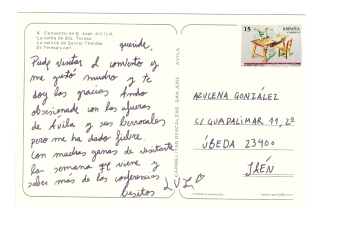 4 Convento de S. José, AVILA.
La celda de Sta. Teresa.
La cellule de Sainte Thérèse.
St Teresa's cell.
querida,
Pude visitar el convento y
me gustó mucho y te
doy las gracias. Ando
obsesionada con las afueras
de Ávila y sus berrocales
pero me ha dado fiebre.
Con muchas ganas de visitarte
la semana que viene y
saber más de las conferencias
besitos LUZ
CARMELITAS DESCALZAS SAN JOSE AVILA
15 ESPAÑA
CORREOS
AZUCENA GONZÁLEZ
C/ GUADALIMAR 11, 2º
ÚBEDA 23400
JAÉN